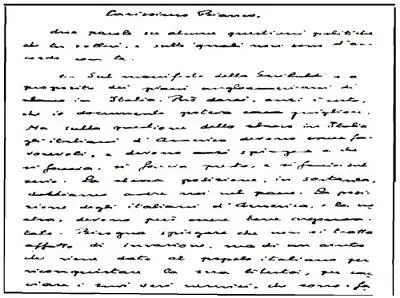 Carissimo Bianco,
due parole su alcune questioni politiche
che tu sollevi, e sulle quali non sono d'ac-
cordo con te.
1.- Sul manifesto della Garibaldi e a
proposito dei piani angloamericani di
sbarco in Italia. Può darsi, anzi è certo,
che il documento poteva essere migliore.
Ma sulla questione dello sbarco in Italia
gli italiani d'America devono essere fa-
vorevoli, e devono anzi spingere a che
si faccia, si faccia presto, e si faccia sul
serio. La stessa posizione, in sostanza,
dobbiamo avere noi nel paese. La posi-
zione degli italiani d'America, e la no-
stra, devono però essere bene argomen-
tate. Bisogna spiegare che non si tratta
affatto di invasione, ma di un aiuto
che viene dato al popolo italiano per
riconquistare la sua libertà, per cac-
ciare i suoi veri nemici, che sono